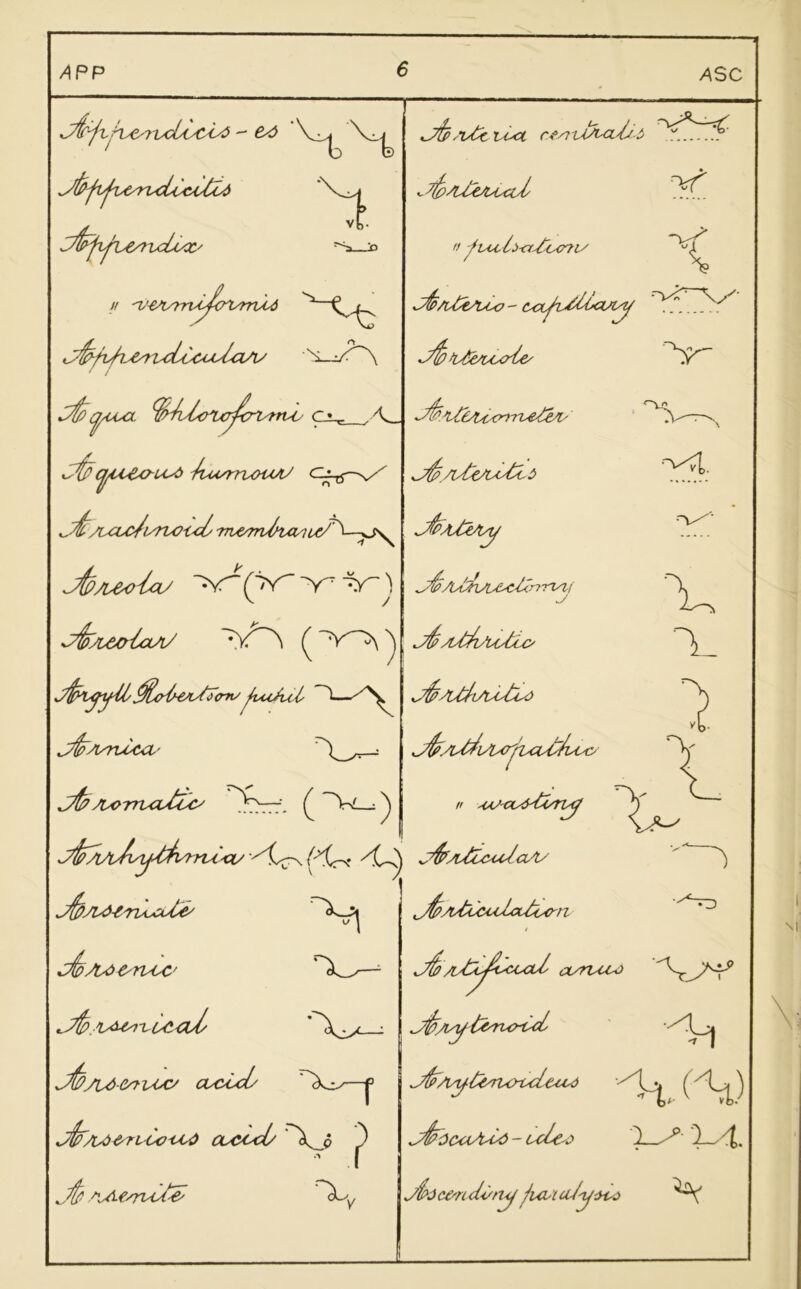 APP 6 ASC
Appendicis - es
Appendicitis
Appendix
" vermiformis
Appendicular
Aqua Chloroformi
Aqueous humour
Arachnoid membrane
Areola
Areolar
Argyll Robertson pupil
Arnica
Aromatic
Arrhythmia
Arseniate
Arsenic
Arsenical
Arsenic acid
Arsenious acid
Arsenite
Arteria centralis
Arterial
" pulsation
Arterio - capillary
Arteriole
Arteriometer
Arteritis
Artery
Arthrectomy
Arthritic
Arthritis
Arthropathic
" wasting
Articular
Articulation
Artificial anus
Arytenoid
Arytenoideus
Ascaris - ides
Ascending paralysis